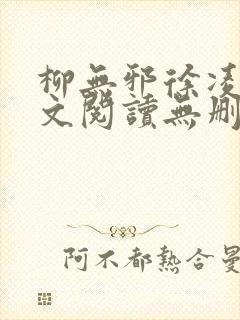 柳無邪徐凌
文閱讀無刪
阿不都熱合曼